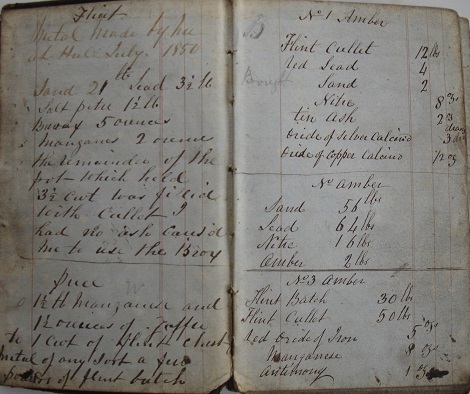 Flint
Metal Made by me
at Hull July. 1850
Sand 21 lb Lead 3½ lb
Salt petre 1½ lb
Borax 5 ounces
Manganes 2 ounce
the remainder of the
pot which held
3½ Cwt was filled
with Cullet I
had no ash Causd
me to use the Borax
1½ lb Manganese and
1½ ounces of Zaffer
to 1 Cwt of Flint Cullet
metal of any sort a few
pounds of flint batch
No 1 Amber
Flint Cullet 12 lbs
Red Lead 4
Sand 2
Nitre 8 ozs
tin Ash 2 ozs
oxide of Silver Calcined 3 drams
oxide of Copper Calcined ½ oz
No Amber
Sand 56 lbs
Lead 64 lbs
Nitre 16 lbs
Amber 2 lbs
No 3 Amber
Flint Batch 30 lbs
Flint Cullet 50 lbs
Red oxide of Iron 5 ozs
Manganese 8 ozs
Antimony 1